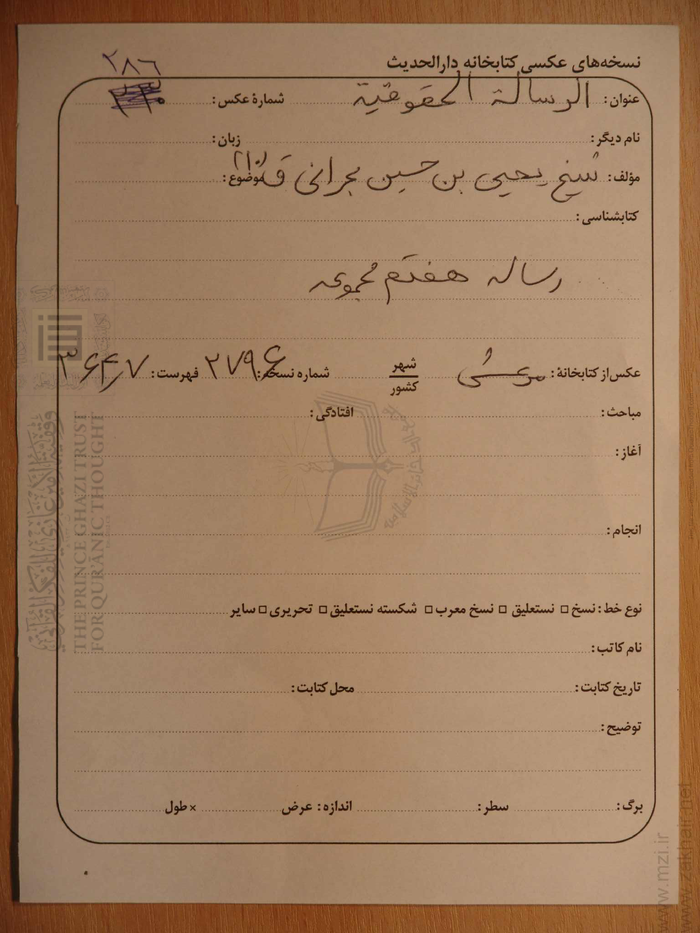 نسخه‌های عکسی کتابخانه دارالحدیث
۲۸۶
عنوان: الرسالة الحقوقیة شمارهٔ عکس:
نام دیگر: زبان:
مؤلف: شیخ یحیی بن حسین بحرانی ق۱۰ موضوع:
کتابشناسی:
رساله هفتم مجموعه
عکس از کتابخانهٔ: مرعشی شهر کشور شماره نسخه: ۲۷۹۶ فهرست: ۷ر۳۶۴
مباحث: افتادگی:
آغاز:
انجام:
نوع خط: نسخ □ نستعلیق □ نسخ معرب □ شکسته نستعلیق □ تحریری □ سایر
نام کاتب:
تاریخ کتابت: محل کتابت:
توضیح:
برگ: سطر: اندازه: عرض × طول
THE PRINCE GHAZI TRUST
FOR QUR'ANIC THOUGHT
www.mzi.ir
www.zakhair.net